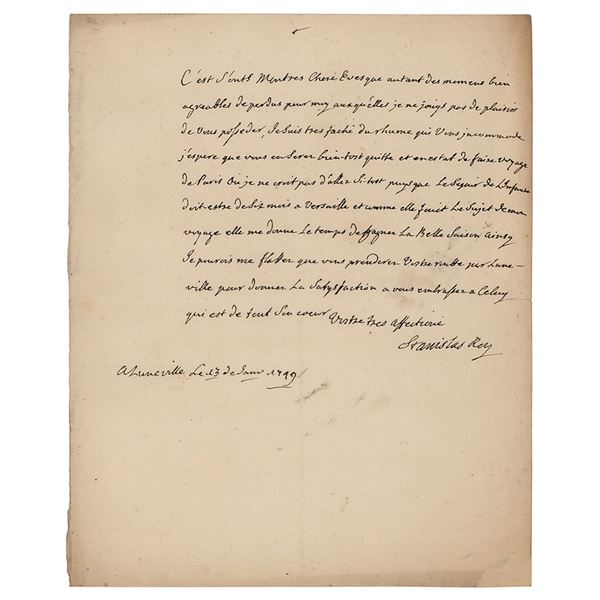 C'est sont Montres Cheré Evesque autant des momens bien
agreables de perdus pour moy aux quelles je ne jouis pas de plaisir
de Vous posseder, je suis tres faché du rhume qui Vous incommode
j'espere que vous en serez bien tost quitte et en estat de faire voyage
de Paris Ou je ne croit pas d'aller si tost puisque Le Sejour de L'Infante
doit estre de Six mois a Versaille et comme elle fait Le Sujet de mon
voyage elle me donne Le temps de gagner La Belle Saison ainsy
Je pourois me flatter que vous prenderez Vostre rutte par Lune-
ville pour donner La Satisfaction a vous embrasser a Celuy
qui est de tout Son coeur Vostre tres affectioné
Stanislas Roy
A Luneville Le 13 de Janv 1749